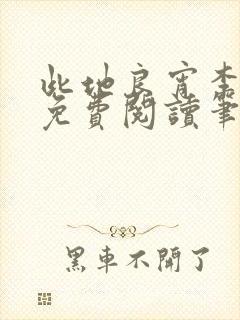 此地良宵李
免費閱讀筆
黑車不開了